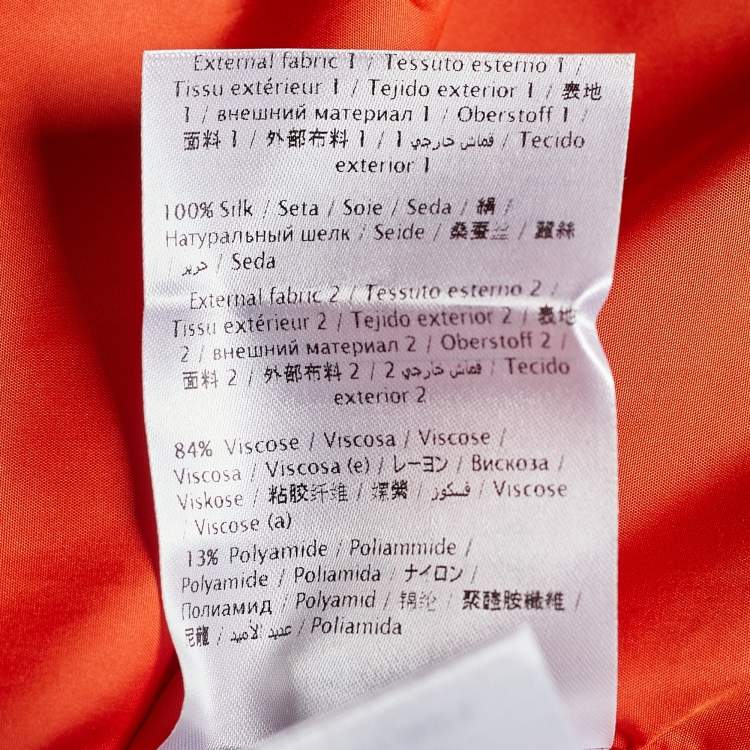 External fabric 1 / Tessuto esterno 1 /
Tissu extérieur 1 / Tejido exterior 1 / 表地
1 / внешний материал 1 / Oberstoff 1 /
面料 1 / 外部布料 1 / قماش خارجي 1 / Tecido
exterior 1
100% Silk / Seta / Soie / Seda / 絹 /
Натуральный шелк / Seide / 桑蚕丝 / 蠶絲
/ حرير / Seda
External fabric 2 / Tessuto esterno 2 /
Tissu extérieur 2 / Tejido exterior 2 / 表地
2 / внешний материал 2 / Oberstoff 2 /
面料 2 / 外部布料 2 / قماش خارجي 2 / Tecido
exterior 2
84% Viscose / Viscosa / Viscose /
Viscosa / Viscosa (e) / レーヨン / Вискоза /
Viskose / 粘胶纤维 / 嫘縈 / فسكوز / Viscose
/ Viscose (a)
13% Polyamide / Poliammide /
Polyamide / Poliamida / ナイロン /
Полиамид / Polyamid / 锦纶 / 聚醯胺纖維 /
尼龍 / عديد الأميد / Poliamida